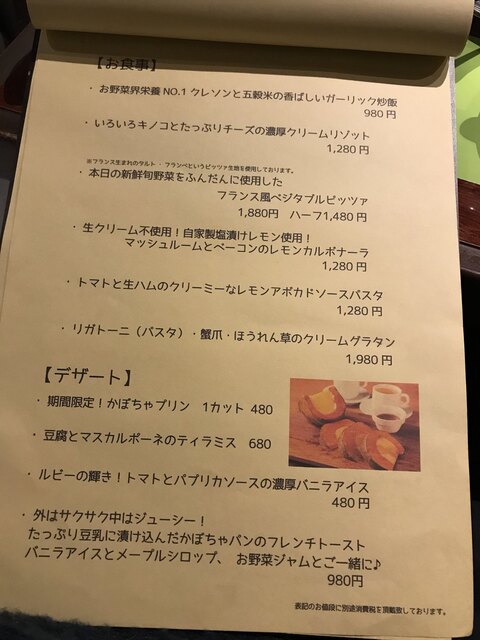 【お食事】
・お野菜界栄養NO.1 クレソンと五穀米の香ばしいガーリック炒飯
980円
・いろいろキノコとたっぷりチーズの濃厚クリームリゾット
1,280円
※フランス生まれのタルト・フランベというピッツァ生地を使用しております。
・本日の新鮮旬野菜をふんだんに使用した
フランス風ベジタブルピッツァ
1,880円 ハーフ1,480円
・生クリーム不使用！自家製塩漬けレモン使用！
マッシュルームとベーコンのレモンカルボナーラ
1,280円
・トマトと生ハムのクリーミーなレモンアボカドソースパスタ
1,280円
・リガトーニ（パスタ）・蟹爪・ほうれん草のクリームグラタン
1,980円
【デザート】
・期間限定！かぼちゃプリン 1カット 480
・豆腐とマスカルポーネのティラミス 680
・ルビーの輝き！トマトとパプリカソースの濃厚バニラアイス
480円
・外はサクサク中はジューシー！
たっぷり豆乳に漬け込んだかぼちゃパンのフレンチトースト
バニラアイスとメープルシロップ、お野菜ジャムとご一緒に♪
980円
表記のお値段に別途消費税を頂戴致しております。